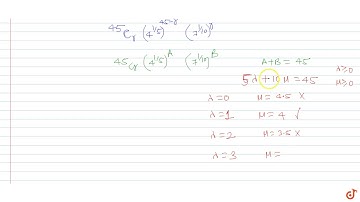 ⁴⁵Cᵣ (4^{1/5})^{45-r} (7^{1/10})^r
⁴⁵Cᵣ (4^{1/5})^A (7^{1/10})^B A+B = 45
5λ+10μ=45 λ≥0
μ≥0
λ=0 μ=4.5 ×
λ=1 μ=4 ✓
λ=2 μ=3.5 ×
λ=3 μ=